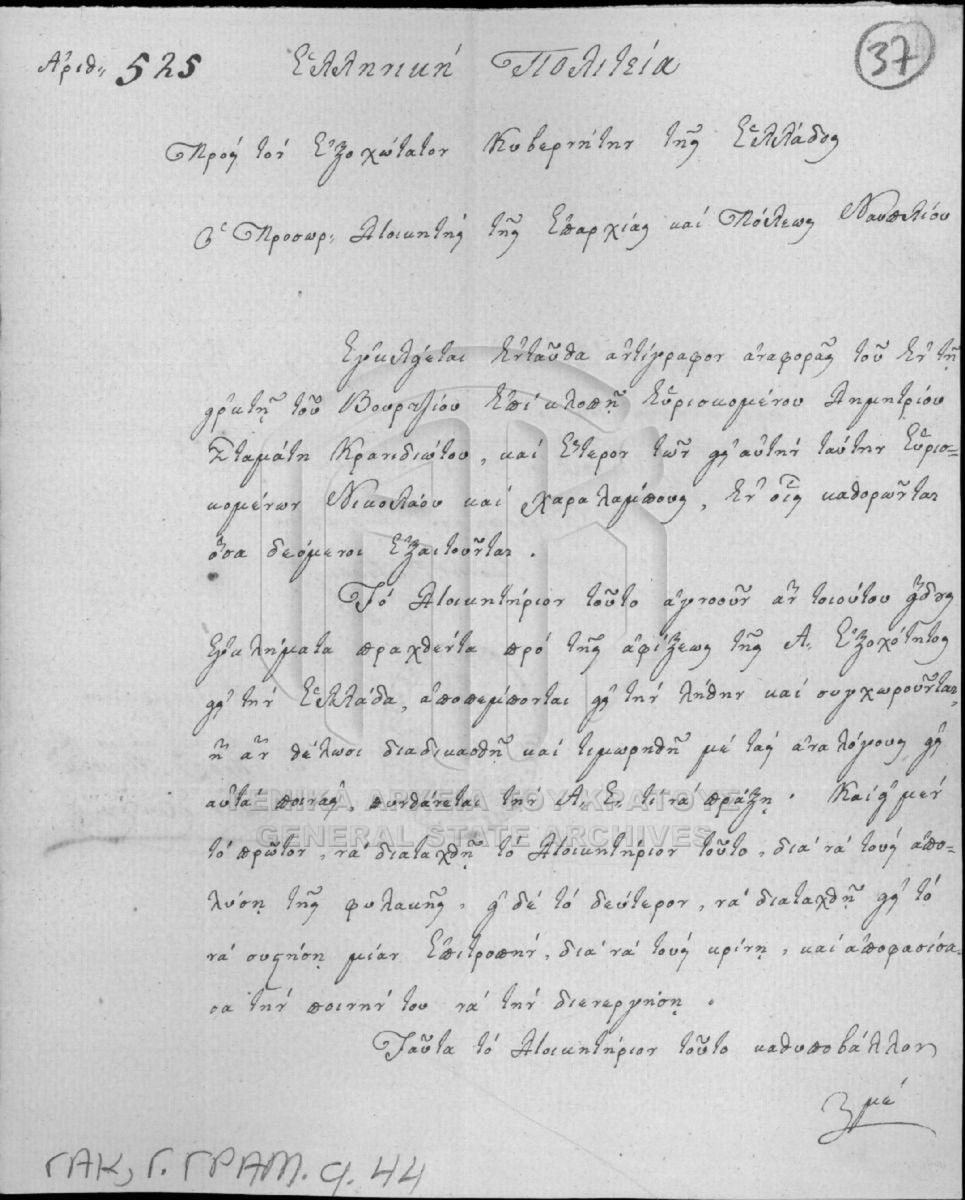 Ἀριθ: 525 Ἑλληνική Πολιτεία 37
Πρός τόν Ἐξοχώτατον Κυβερνήτην τῆς Ἑλλάδος
Ὁ Προσωρ: Διοικητής τῆς Ἐπαρχίας καί Πόλεως Ναυπλίου
Ἐγκλείεται ἐνταῦθα ἀντίγραφον ἀναφορᾶς τοῦ ἐν τῇ
εἱρκτῇ τοῦ Βουρτζίου ἐπί κλοπῇ εὑρισκομένου Δημητρίου
Σταμάτη Κρανιδιώτου, καί ἕτερον τῶν εἰς αὐτήν ταύτην εὑρισ-
κομένων Νικολάου καί Χαραλάμπους, ἐν οἷς καθορῶνται
ὅσα δεόμενοι ἐξαιτοῦνται.
Τό Διοικητήριον τοῦτο ἀγνοοῦν ἄν τοιούτου εἴδους
ἐγκλήματα πραχθέντα πρό τῆς ἀφίξεως τῆς Α. Ἐξοχότητος
εἰς τήν Ἑλλάδα, ἀποπέμπονται εἰς τήν λήθην καί συγχωροῦνται,
ἤ ἄν θέλωσι διαδικασθῆ καί τιμωρηθῆ μέ τάς ἀναλόγους εἰς
αὐτά ποινάς, πυνθάνεται τήν Α. Ε. τί νά πράξῃ. Καί εἰ μέν
τό πρῶτον, νά διαταχθῇ τό Διοικητήριον τοῦτο, διά νά τούς ἀπο-
λύσῃ τῆς φυλακῆς, εἰ δέ τό δεύτερον, νά διαταχθῇ εἰς τό
νά συστήσῃ μίαν Ἐπιτροπήν, διά νά τούς κρίνῃ, καί ἀποφασίσα-
σα τήν ποινήν του νά τήν διενεργήσῃ.
Ταῦτα τό Διοικητήριον τοῦτο καθυποβάλλον
μέ
ΓΕΝΙΚΑ ΑΡΧΕΙΑ ΤΟΥ ΚΡΑΤΟΥΣ
GENERAL STATE ARCHIVES
ΓΑΚ, Γ. ΓΡΑΜ. φ. 44